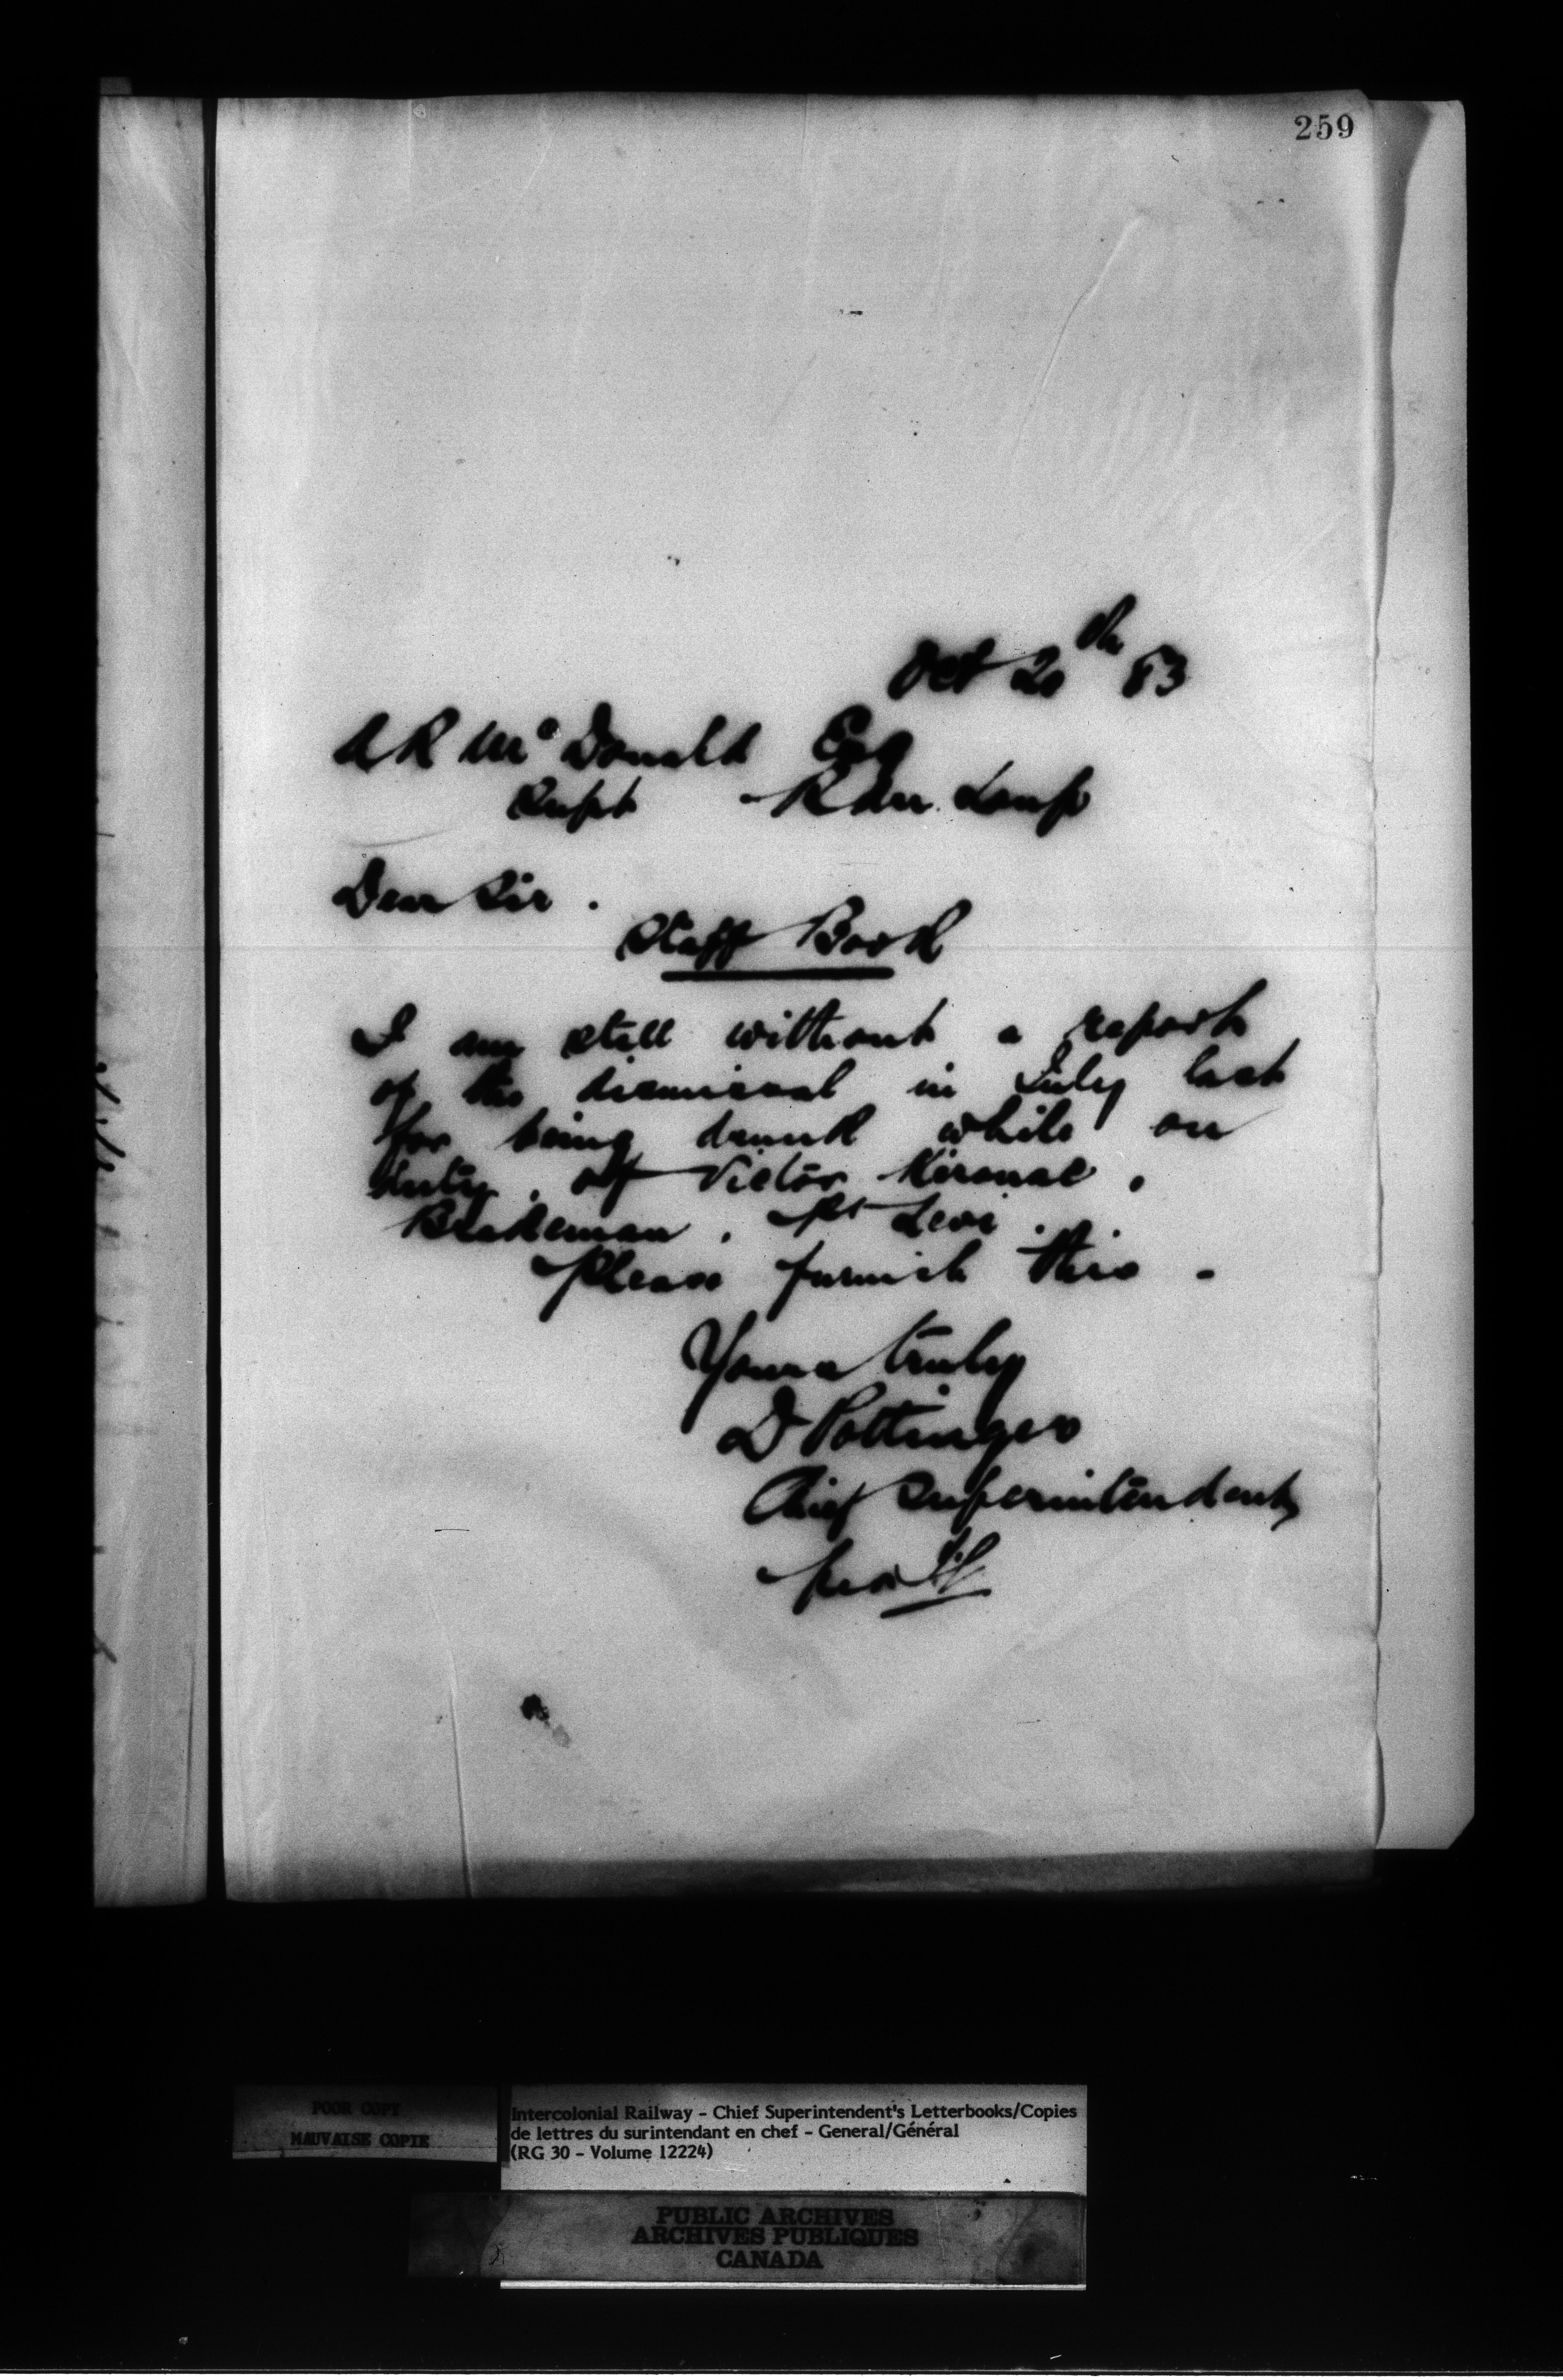 259
Oct 20th 83
A R McDonald Esq
Supt R du Loup
Dear Sir.
Staff Book
I am still without a report
of the dismissal in July last
for being drunk while on
duty, of Victor Kirouac,
Brakeman, Pt Levi.
Please furnish this -
Yours truly
D Pottinger
Chief Superintendent
POOR COPY
MAUVAISE COPIE
Intercolonial Railway - Chief Superintendent's Letterbooks/Copies
de lettres du surintendant en chef - General/Général
(RG 30 - Volume 12224)
PUBLIC ARCHIVES
ARCHIVES PUBLIQUES
CANADA